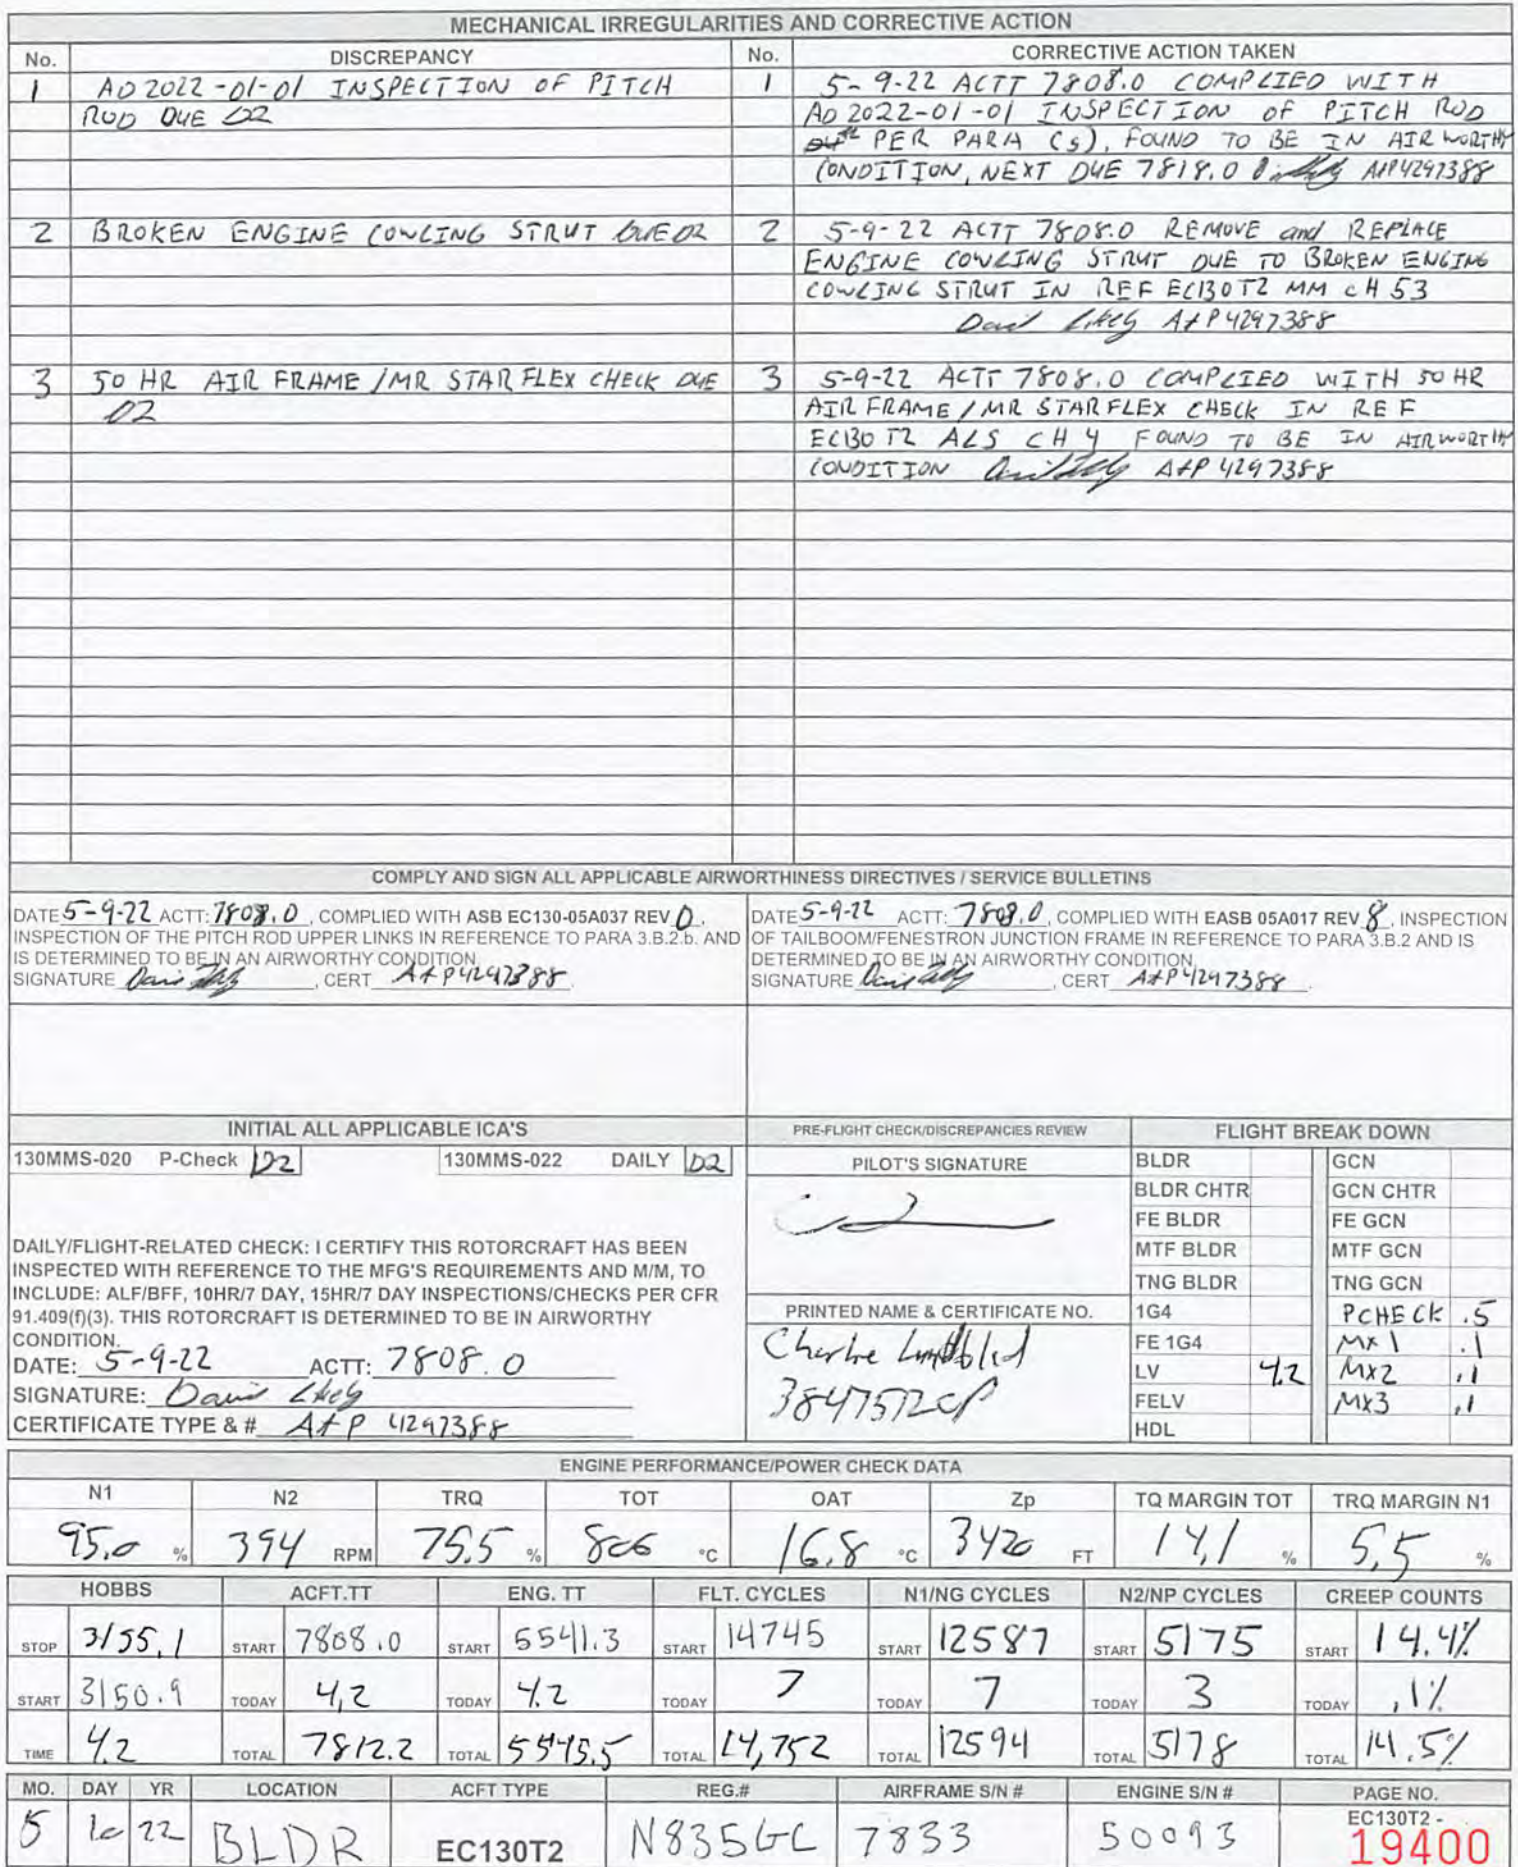 MECHANICAL IRREGULARITIES AND CORRECTIVE ACTION
No. DISCREPANCY No. CORRECTIVE ACTION TAKEN
1 AD 2022-01-01 INSPECTION OF PITCH 1 5-9-22 ACTT 7808.0 COMPLIED WITH
ROD DUE D2 AD 2022-01-01 INSPECTION OF PITCH ROD
PER PARA (g), FOUND TO BE IN AIRWORTHY
CONDITION, NEXT DUE 7818.0 A&P 4297388
2 BROKEN ENGINE COWLING STRUT DUE D2 2 5-9-22 ACTT 7808.0 REMOVE and REPLACE
ENGINE COWLING STRUT DUE TO BROKEN ENGINE
COWLING STRUT IN REF EC130T2 MM CH 53
David A+P 4297388
3 50 HR AIR FRAME / MR STAR FLEX CHECK DUE 3 5-9-22 ACTT 7808.0 COMPLIED WITH 50 HR
D2 AIR FRAME / MR STAR FLEX CHECK IN REF
EC130 T2 ALS CH 4 FOUND TO BE IN AIRWORTHY
CONDITION A+P 4297388
COMPLY AND SIGN ALL APPLICABLE AIRWORTHINESS DIRECTIVES / SERVICE BULLETINS
DATE 5-9-22 ACTT: 7808.0 , COMPLIED WITH ASB EC130-05A037 REV 0 ,
INSPECTION OF THE PITCH ROD UPPER LINKS IN REFERENCE TO PARA 3.B.2.b. AND
IS DETERMINED TO BE IN AN AIRWORTHY CONDITION.
SIGNATURE , CERT A+P 4297388 .
DATE 5-9-22 ACTT: 7808.0 , COMPLIED WITH EASB 05A017 REV 8 , INSPECTION
OF TAILBOOM/FENESTRON JUNCTION FRAME IN REFERENCE TO PARA 3.B.2 AND IS
DETERMINED TO BE IN AN AIRWORTHY CONDITION.
SIGNATURE , CERT A+P 4297388 .
INITIAL ALL APPLICABLE ICA'S
130MMS-020 P-Check D2 130MMS-022 DAILY D2
DAILY/FLIGHT-RELATED CHECK: I CERTIFY THIS ROTORCRAFT HAS BEEN
INSPECTED WITH REFERENCE TO THE MFG'S REQUIREMENTS AND M/M, TO
INCLUDE: ALF/BFF, 10HR/7 DAY, 15HR/7 DAY INSPECTIONS/CHECKS PER CFR
91.409(f)(3). THIS ROTORCRAFT IS DETERMINED TO BE IN AIRWORTHY
CONDITION.
DATE: 5-9-22 ACTT: 7808.0
SIGNATURE: David
CERTIFICATE TYPE & # A+P 4297388
PRE-FLIGHT CHECK/DISCREPANCIES REVIEW
PILOT'S SIGNATURE
PRINTED NAME & CERTIFICATE NO.
Charlie
3847572CP
FLIGHT BREAK DOWN
BLDR GCN
BLDR CHTR GCN CHTR
FE BLDR FE GCN
MTF BLDR MTF GCN
TNG BLDR TNG GCN
1G4 PCHECK .5
FE 1G4 Mx1 .1
LV 4.2 Mx2 .1
FELV Mx3 .1
HDL
ENGINE PERFORMANCE/POWER CHECK DATA
N1 N2 TRQ TOT OAT Zp TQ MARGIN TOT TRQ MARGIN N1
95.0 % 394 RPM 75.5 % 806 °C 16.8 °C 3420 FT 14.1 % 5.5 %
HOBBS ACFT.TT ENG. TT FLT. CYCLES N1/NG CYCLES N2/NP CYCLES CREEP COUNTS
STOP 3155.1 START 7808.0 START 5541.3 START 14745 START 12587 START 5175 START 14.4%
START 3150.9 TODAY 4.2 TODAY 4.2 TODAY 7 TODAY 7 TODAY 3 TODAY .1%
TIME 4.2 TOTAL 7812.2 TOTAL 5545.5 TOTAL 14,752 TOTAL 12594 TOTAL 5178 TOTAL 14.5%
MO. DAY YR LOCATION ACFT TYPE REG.# AIRFRAME S/N # ENGINE S/N # PAGE NO.
5 10 22 BLDR EC130T2 N835GC 7833 50093 EC130T2 -
19400